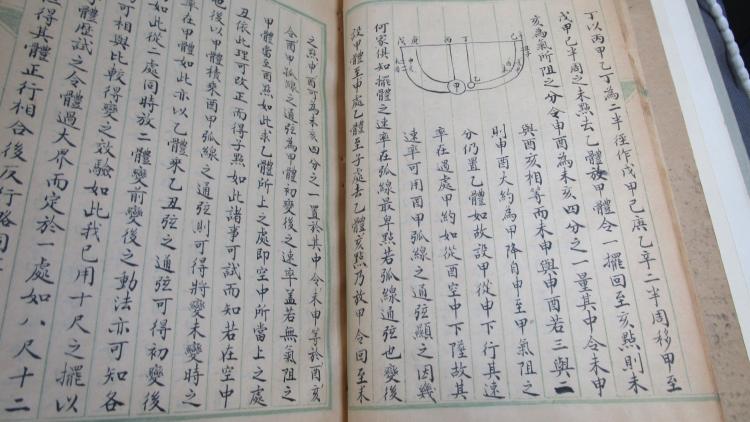 丁以丙甲乙丁為二半徑作戊甲己庚乙辛二半周移甲至
戊甲己半周之未點去乙體放甲體令一擺回至亥點則未
亥為氣所阻之分令申酉為未亥四分之一量其中令未申
與酉亥相等而未申與申酉若三與二
則申酉大約為甲降自申至甲氣阻之
分仍置乙體如故設甲從申下行其速
率在遇處甲約如從酉空中下墜故其
速率可用酉甲弧線之通弦顯之因幾
戊 庚 丙 丁
甲 乙
何家俱知擺體之速率在弧線最卑點若弧線通弦也變後
設甲體至申處乙體至子處去乙體亥點乃放甲令回至未
之點申酉可為未亥四分之一置於其中令未申等於酉亥
令酉甲弧線之通弦為甲體初變後之速率蓋若無氣阻之
甲體當至酉點如此求乙體所上之處即空中所當上之處
丑依此理可改正而得子點如此諸事可試而如若在空中
也後以甲體積乘酉甲弧線之通弦則可得將變未變時之
率在甲體如此亦以乙體乘乙丑弦之通弦可得初變後
如此從二處同時放二體變前變後之動法亦可知各
可相與比較得變之效驗如此我已用十尺之擺以
體歷試之令體過大界而定於一處如八尺十二
得其體正行相合後反行路同